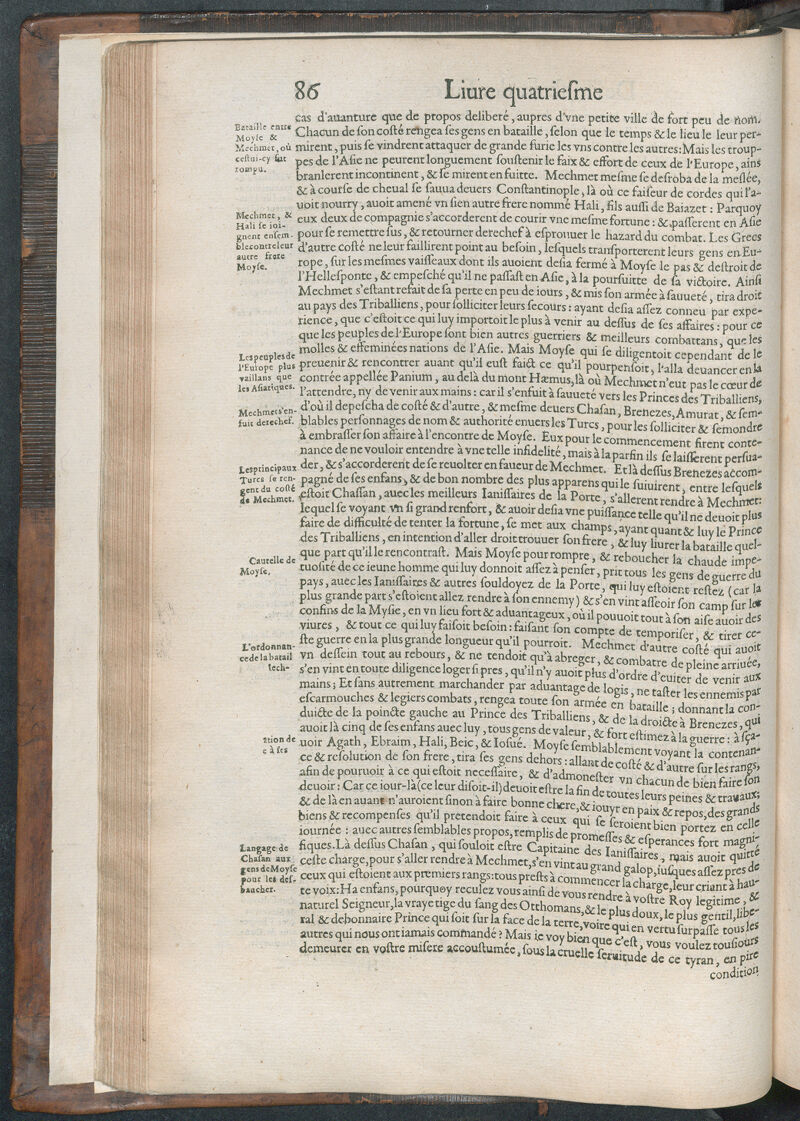 86 Liure quatriesme
cas d'auanture que de propos deliberé, aupres d'vne petite ville de fort peu de nom.
Bataille entre
Moyse &
Mechmet, où
cestui-cy fut
rompu.
Chacun de son costé rengea ses gens en bataille, selon que le temps & le lieu le leur per-
mirent, puis se vindrent attaquer de grande furie les vns contre les autres: Mais les troup-
pes de l'Asie ne peurent longuement soustenir le faix & effort de ceux de l'Europe, ains
branlerent incontinent, & se mirent en fuitte. Mechmet mesme se desroba de la meslée,
& à course de cheual se sauua deuers Constantinople, là où ce faiseur de cordes qui l'a-
uoit nourry, auoit amené vn sien autre frere nommé Hali, fils aussi de Baiazet: Parquoy
Mechmet, &
Hali se ioi-
gnent ensem-
ble contre leur
autre frere
Moyse.
eux deux de compagnie s'accorderent de courir vne mesme fortune: & passerent en Asie
pour se remettre sus, & retourner derechef à esprouuer le hazard du combat. Les Grecs
d'autre costé ne leur faillirent point au besoin, lesquels transporterent leurs gens en Eu-
rope, sur les mesmes vaisseaux dont ils auoient desia fermé à Moyse le pas & destroit de
l'Hellesponte, & empesché qu'il ne passast en Asie, à la poursuitte de sa victoire. Ainsi
Mechmet s'estant refait de sa perte en peu de iours, & mis son armée à sauueté, tira droit
au pays des Triballiens, pour solliciter leurs secours: ayant desia assez conneu par expe-
rience, que c'estoit ce qui luy importoit le plus à venir au dessus de ses affaires: pour ce
que les peuples de l'Europe sont bien autres guerriers & meilleurs combattans, que les
Les peuples de
l'Europe plus
vaillans que
les Asiatiques.
molles & effeminées nations de l'Asie. Mais Moyse qui se diligentoit cependant de le
preuenir & rencontrer auant qu'il eust faict ce qu'il pourpensoit, l'alla deuancer en la
contrée appellée Panium, au delà du mont Hæmus, là où Mechmet n'eut pas le cœur de
l'attendre, ny de venir aux mains: car il s'enfuit à sauueté vers les Princes des Triballiens,
Mechmet s'en-
fuit derechef.
d'où il depescha de costé & d'autre, & mesme deuers Chasan, Brenezes, Amurat, & sem-
blables personnages de nom & authorité enuers les Turcs, pour les solliciter & semondre
à embrasser son affaire à l'encontre de Moyse. Eux pour le commencement firent conte-
nance de ne vouloir entendre à vne telle infidelité, mais à la parfin ils se laisserent persua-
Les principaux
Turcs se ren-
gent du costé
de Mechmet.
der, & s'accorderent de se reuolter en faueur de Mechmet. Et là dessus Brenezes accom-
pagné de ses enfans, & de bon nombre des plus apparens qui le suiuirent, entre lesquels
estoit Chassan, auec les meilleurs Ianissaires de la Porte, s'allerent rendre à Mechmet:
lequel se voyant vn si grand renfort, & auoir desia vne puissance telle qu'il ne deuoit plus
faire de difficulté de tenter la fortune, se met aux champs, ayant quant & luy le Prince
des Triballiens, en intention d'aller droit trouuer son frere, & luy liurer la bataille quel-
Cautelle de
Moyse.
que part qu'il le rencontrast. Mais Moyse pour rompre, & reboucher la chaude impe-
tuosité de ce ieune homme qui luy donnoit assez à penser, prit tous les gens de guerre du
pays, auec les Ianissaires & autres souldoyez de la Porte, qui luy estoient restez (car la
plus grande part s'estoient allez rendre à son ennemy) & s'en vint asseoir son camp sur les
confins de la Mysie, en vn lieu fort & aduantageux, où il pouuoit tout à son aise auoir des
viures, & tout ce qui luy faisoit besoin: faisant son compte de temporiser, & tirer ce-
ste guerre en la plus grande longueur qu'il pourroit. Mechmet d'autre costé qui auoit
L'ordonnan-
ce de la batail
tech-
vn dessein tout au rebours, & ne tendoit qu'à abreger, & combatre de pleine arriuée,
s'en vint en toute diligence loger si pres, qu'il n'y auoit plus d'ordre d'euiter de venir aux
mains; Et sans autrement marchander par aduantage de logis, ne taster les ennemis par
escarmouches & legiers combats, rengea toute son armée en bataille; donnant la con-
duicte de la poincte gauche au Prince des Triballiens, & de la droicte à Brenezes, qui
auoit là cinq de ses enfans auec luy, tous gens de valeur, & fort estimez à la guerre: à sça-
tion de
e à ses
uoir Agath, Ebraim, Hali, Beic, & Iosué. Moyse semblablement voyant la contenan-
ce & resolution de son frere, tira ses gens dehors: allant de costé & d'autre sur les rangs,
afin de pouruoir à ce qui estoit necessaire, & d'admonester vn chacun de bien faire son
deuoir: Car ce iour-là (ce leur disoit-il) deuoit estre la fin de toutes leurs peines & trauaux;
& de là en auant n'auroient sinon à faire bonne chere, & iouyr en paix & repos, des grands
biens & recompenses qu'il pretendoit faire à ceux qui se seroient bien portez en celle
iournée: auec autres semblables propos, remplis de promesses & esperances fort magni-
Langage de
Chasan aux
gens de Moyse
pour les des-
baucher.
fiques. Là dessus Chasan, qui souloit estre Capitaine des Ianissaires, mais auoit quitté
ceste charge, pour s'aller rendre à Mechmet, s'en vint au grand galop, iusques assez pres de
ceux qui estoient aux premiers rangs: tous prests à commencer la charge, leur criant à hau-
te voix: Ha enfans, pourquoy reculez vous ainsi de vous rendre à vostre Roy legitime, &
naturel Seigneur, la vraye tige du sang des Otthomans, & le plus doux, le plus gentil, libe-
ral & debonnaire Prince qui soit sur la face de la terre, voire qui en vertu surpasse tous les
autres qui nous ont iamais commandé? Mais ie voy bien que c'est, vous voulez tousiours
demeurer en vostre misere accoustumée, sous la cruelle seruitude de ce tyran, en pire
condition